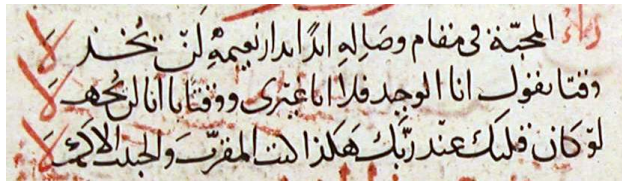 المحبّة في مقام وصَالِهِ ابدًا بدار نعيمهِ لَنْ تُخذ لَا
وقتا يقول انا الوحيد فلا انا غيرى ووقتًا يا انا لن تجهد لا
لَوْ كَان قلبكَ عند رَبّكَ هَكذا كنت المقرّبَ والحبيب الاكمَـ لَا